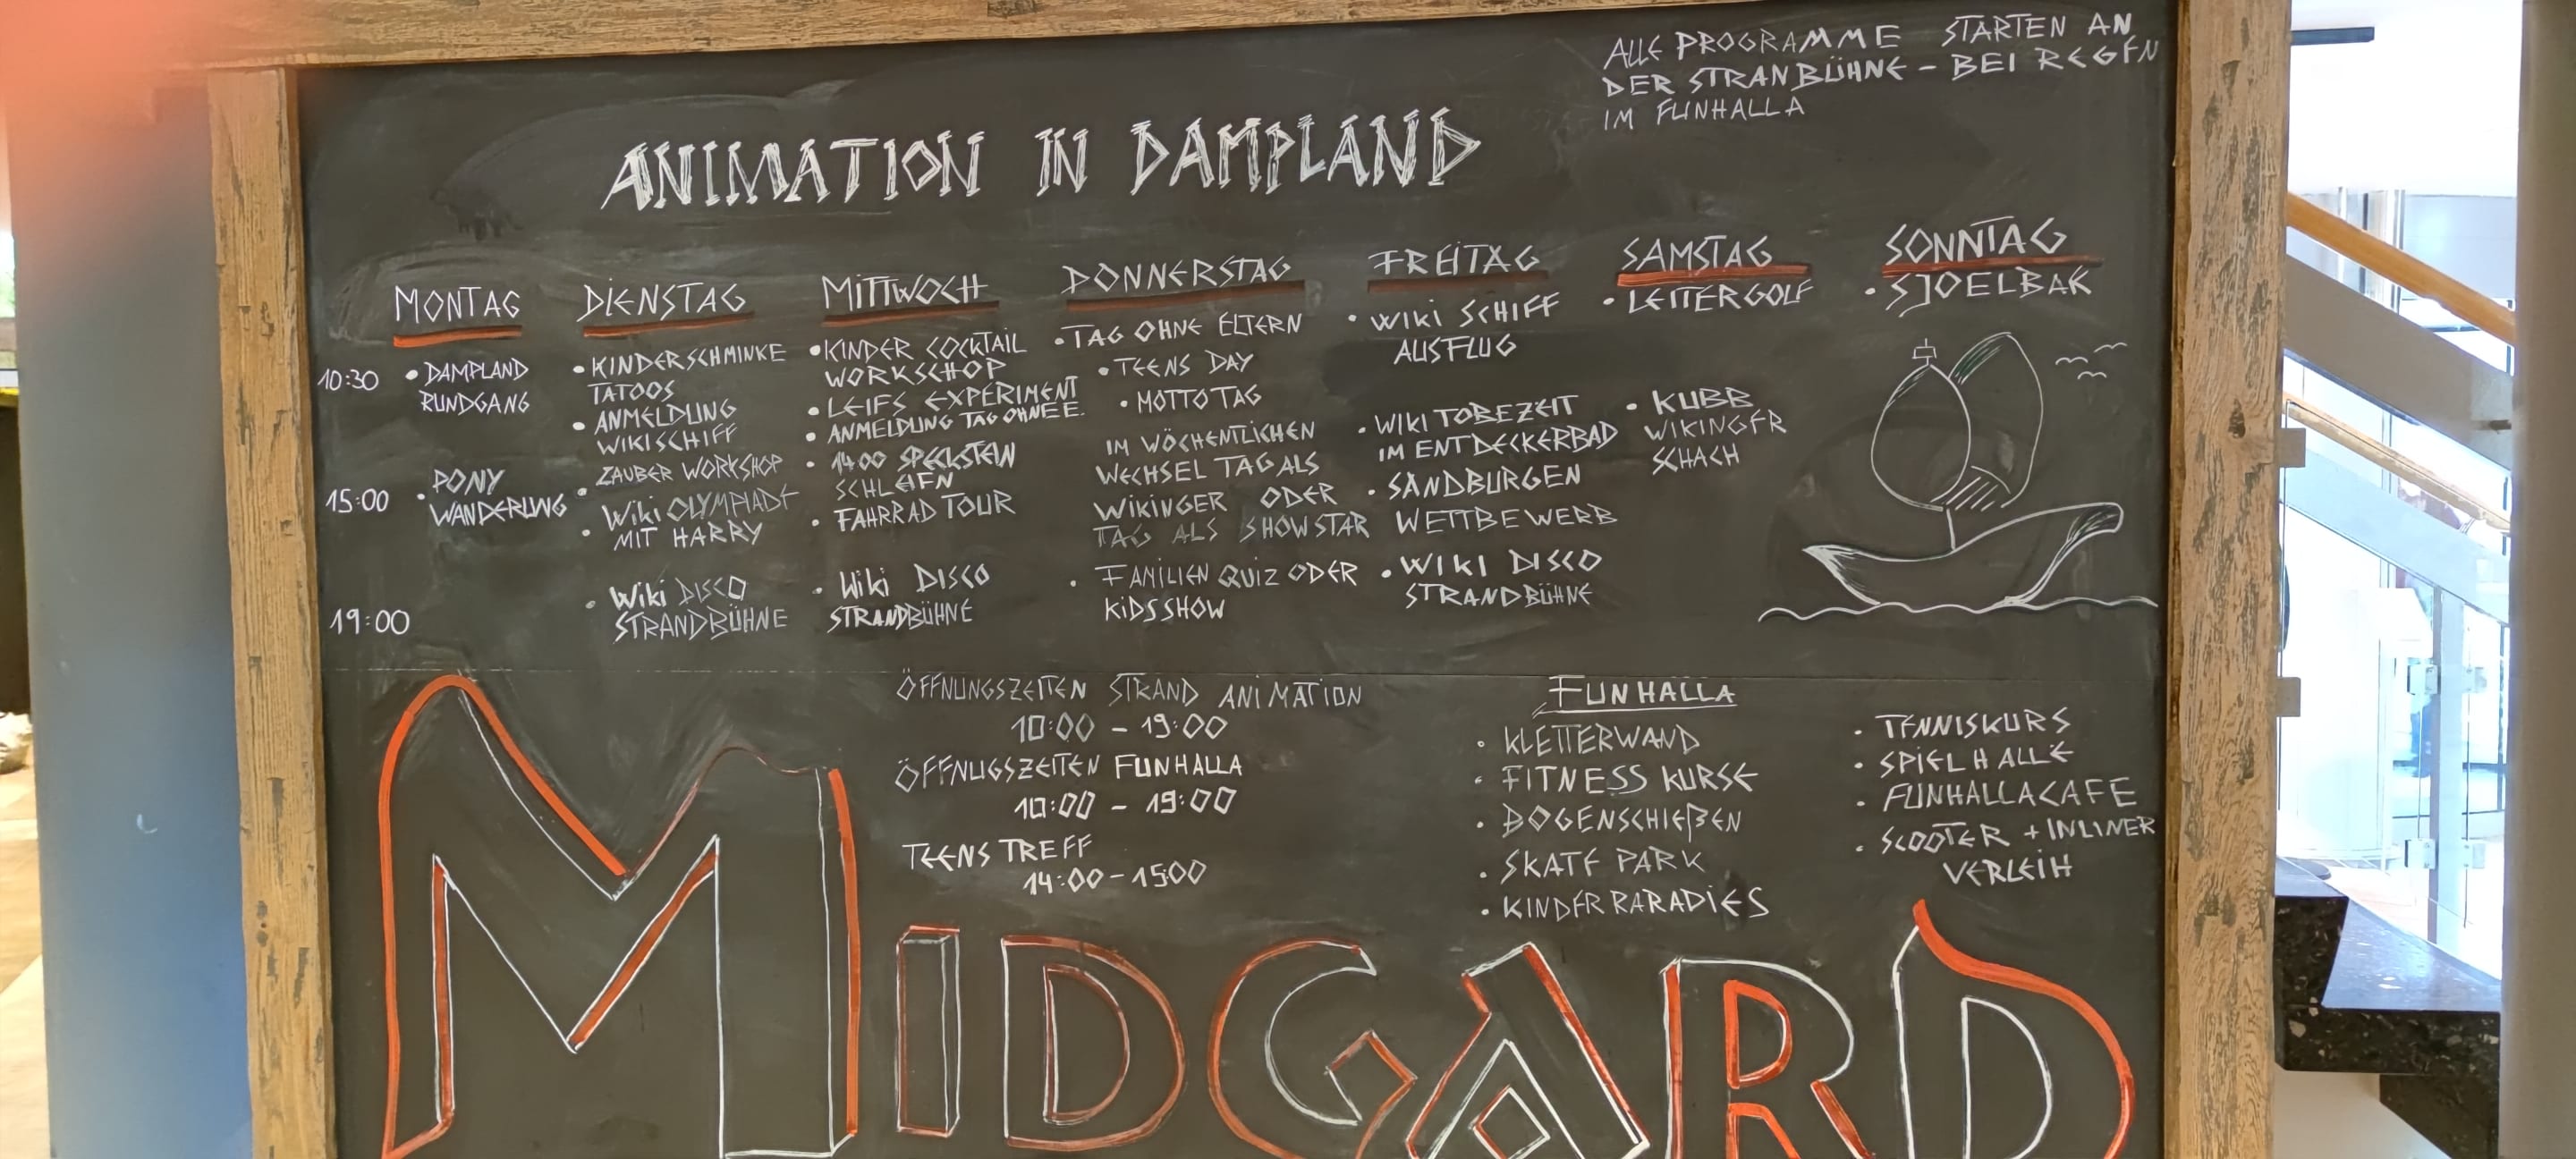 ALLE PROGRAMME STARTEN AN
DER STRANBÜHNE – BEI REGEN
IM FUNHALLA
ANIMATION IN DAMPLAND
MONTAG
10:30
• DAMPLAND
RUNDGANG
15:00
• PONY
WANDERUNG
19:00
DIENSTAG
• KINDERSCHMINKE
TATOOS
• ANMELDUNG
WIKISCHIFF
• ZAUBER WORKSHOP
WIKI OLYMPIADE
• MIT HARRY
• WIKI DISCO
STRANDBÜHNE
MITTWOCH
• KINDER COCKTAIL
WORKSCHOP
• LEIFS EXPERIMENT
• ANMELDUNG TAG OHNE E.
• 1400 SPECKSTEIN
SCHLEIFN
• FAHRRAD TOUR
• WIKI DISCO
STRANDBÜHNE
DONNERSTAG
• TAG OHNE ELTERN
• TEENS DAY
• MOTTOTAG
IM WÖCHENTLICHEN
WECHSEL TAG ALS
WIKINGER ODER
TAG ALS SHOWSTAR
• FAMILIEN QUIZ ODER
KIDSSHOW
FREITAG
• WIKI SCHIFF
AUSFLUG
• WIKI TOBEZEIT
IM ENTDECKERBAD
• SANDBURGEN
WETTBEWERB
• WIKI DISCO
STRANDBÜHNE
SAMSTAG
• LEITERGOLF
• KUBB
WIKINGER
SCHACH
SONNTAG
• SJOELBAK
ÖFFNUNGSZEITEN STRAND ANIMATION
10:00 – 19:00
ÖFFNUGSZEITEN FUNHALLA
10:00 – 19:00
TEENS TREFF
14:00 – 1500
FUNHALLA
• KLETTERWAND
• FITNESS KURSE
• BOGENSCHIEßEN
• SKATE PARK
• KINDERRARADIES
• TENNISKURS
• SPIELHALLE
• FUNHALLACAFE
• SCOOTER + INLINER
VERLEIH
MIDGARD